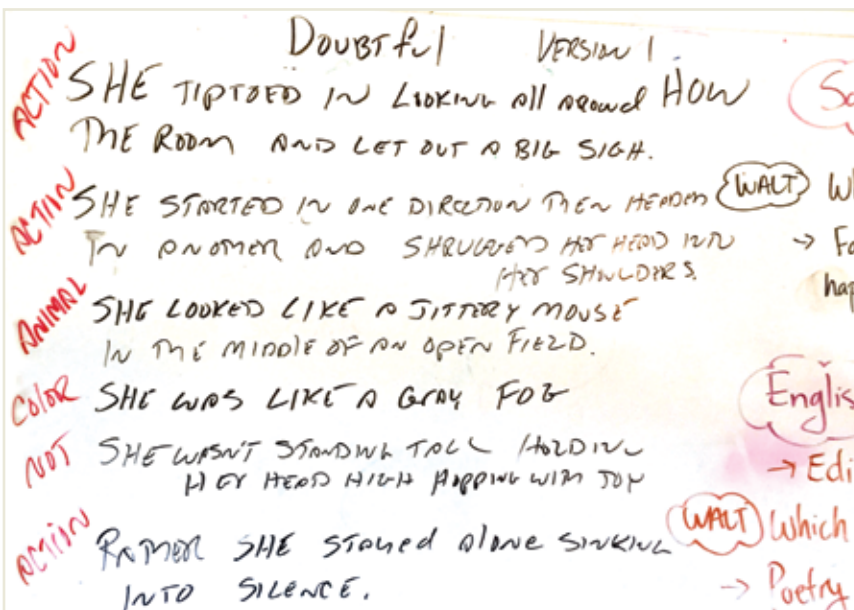 DOUBTful VERSION 1
ACTION SHE TIPTOED IN LOOKING All AROUND HOW
THE ROOM AND LET OUT A BIG SIGH.
ACTION SHE STARTED IN ONE DIRECTION THEN HEADED
IN ANOTHER AND SHRUGGED HER HEAD INTO
HER SHOULDERS.
ANIMAL SHE LOOKED LIKE A JITTERY MOUSE
IN THE MIDDLE OF AN OPEN FIELD.
COLOR SHE WAS LIKE A GRAY FOG
NOT SHE WASN'T STANDING TALL HOLDING
HER HEAD HIGH HOPPING WITH JOY
ACTION RATHER SHE STAYED AlONE SINKING
INTO SILENCE.
So
WALT Wh
→ Fo
hap
Englis
→ Edi
WALT Which
→ Poetry